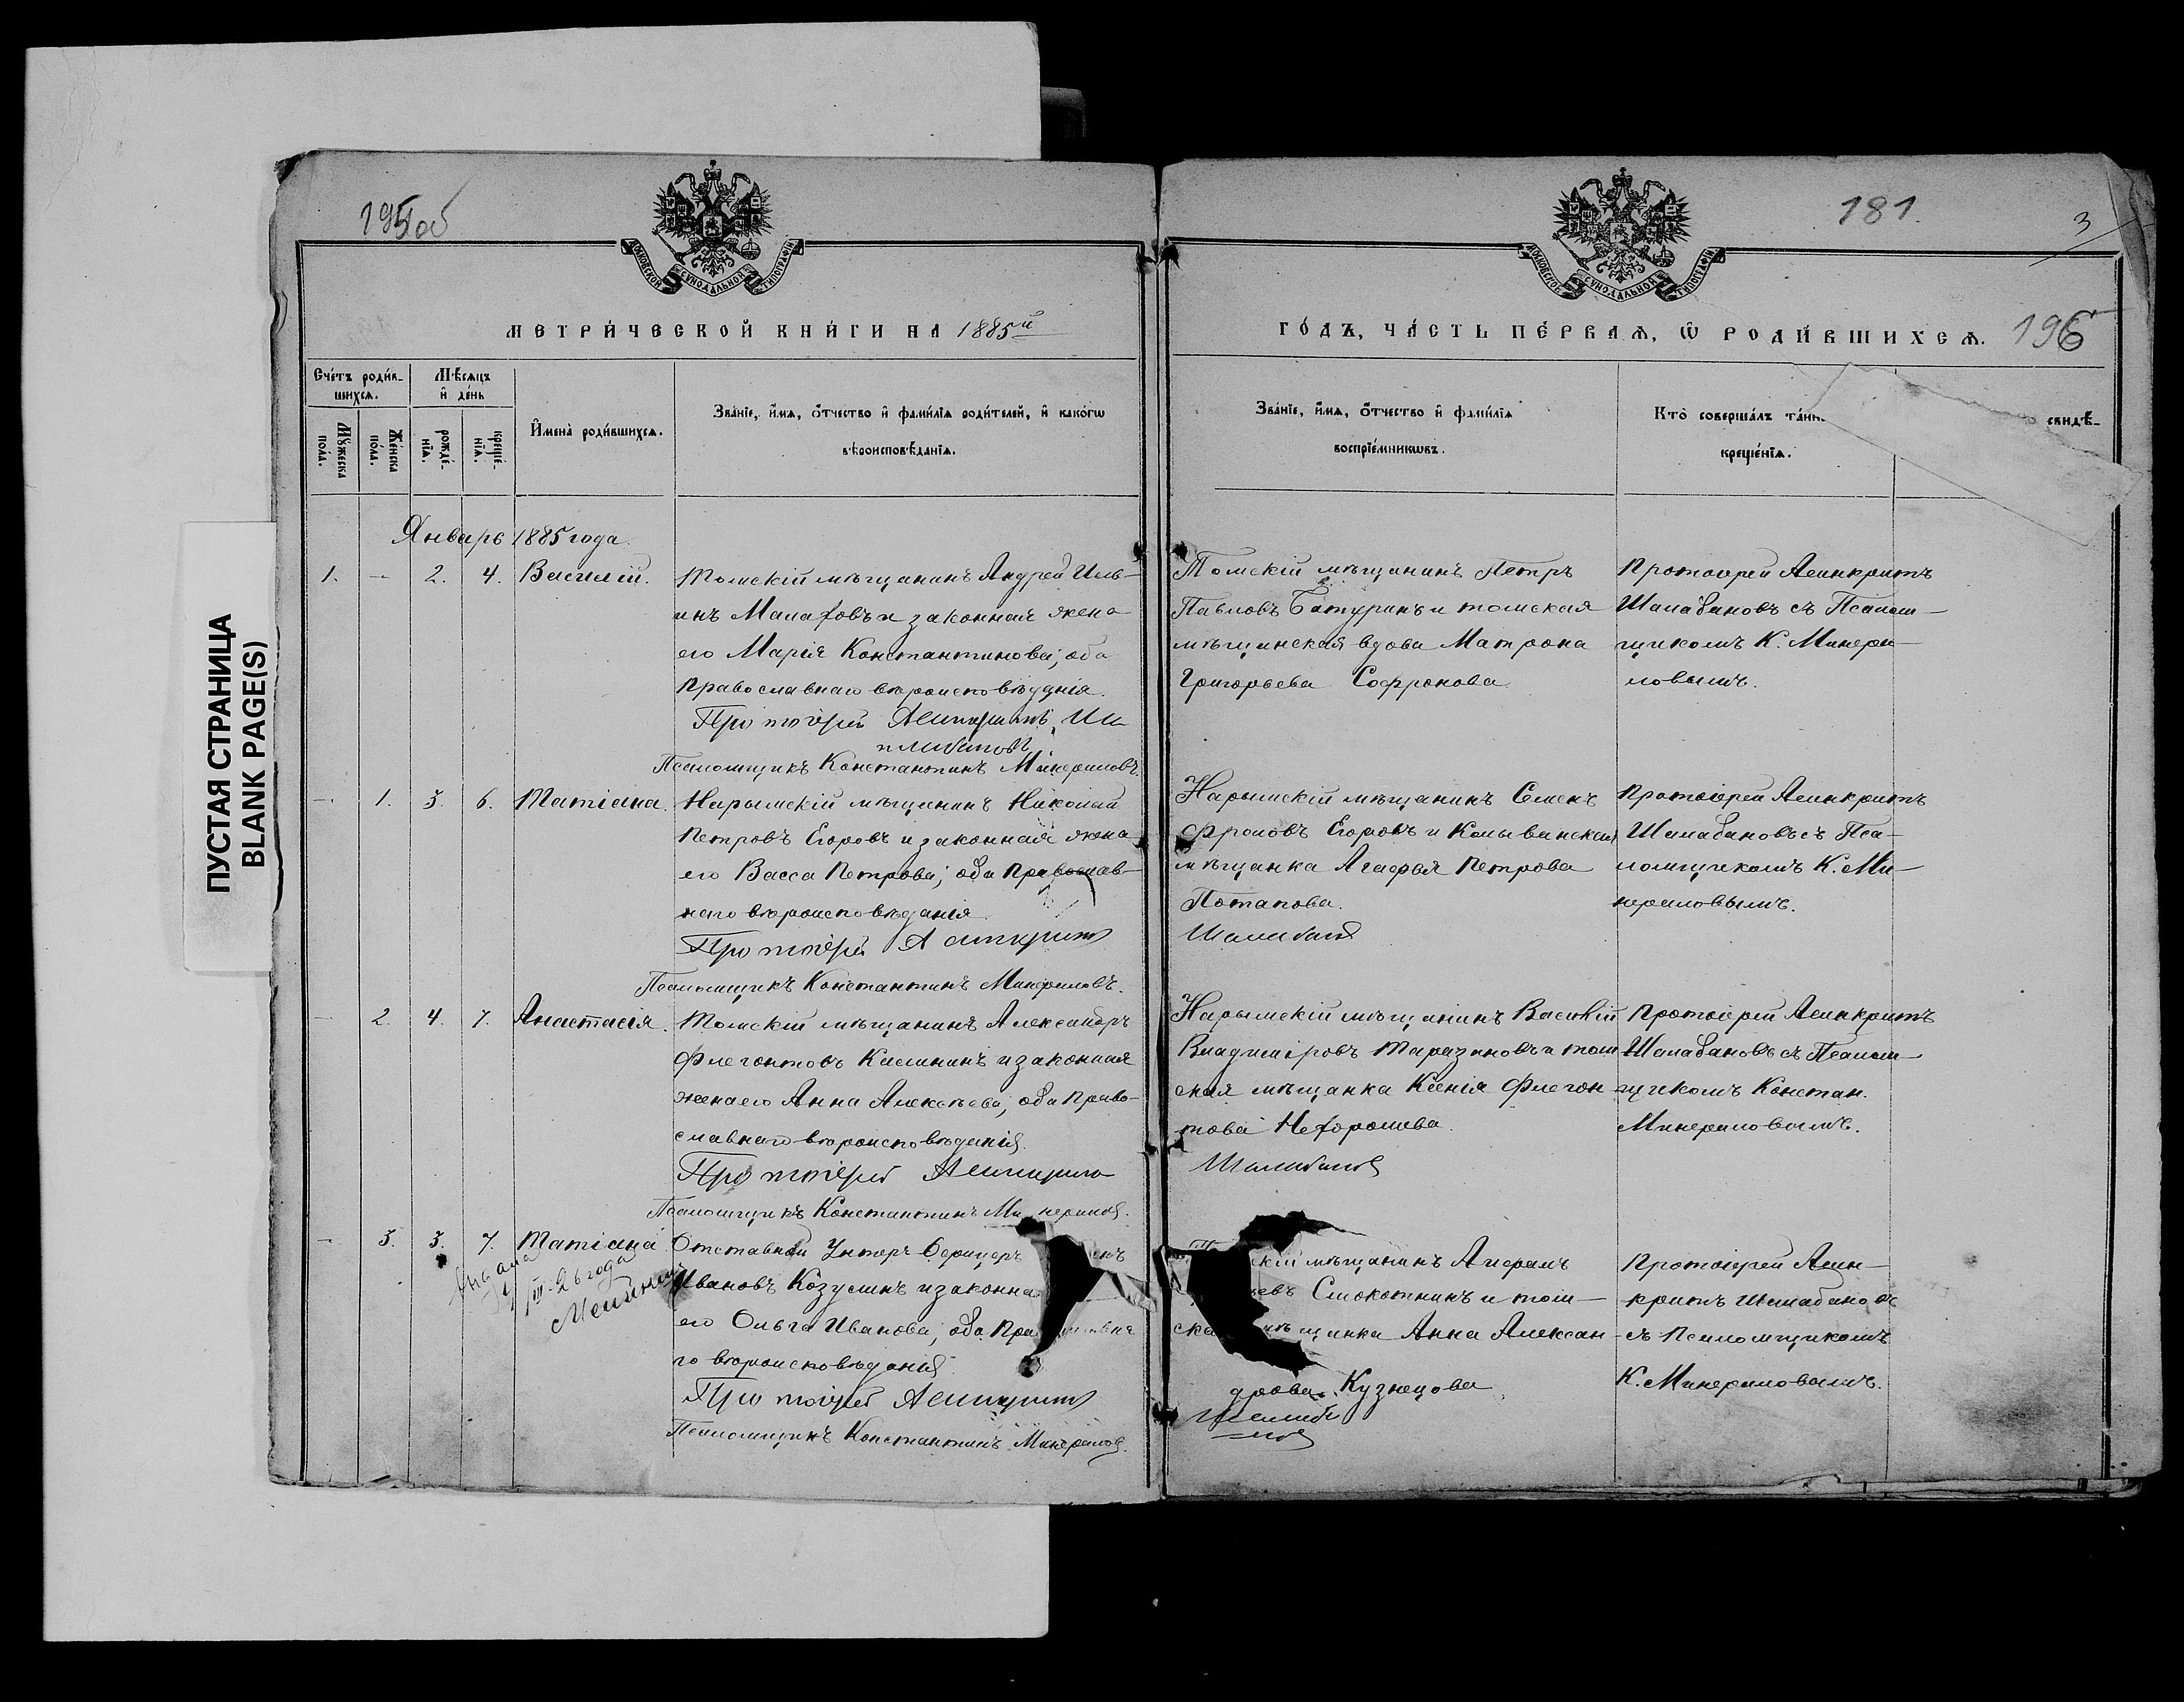 ПУСТАЯ СТРАНИЦА
BLANK PAGE(S)
195об
МОСКОВСКОЙ СУНОДАЛЬНОЙ ТИПОГРАФІИ
МЕТРИ́ЧЕСКОЙ КНИ́ГИ НА 1885й
Сче́тъ роди́в-
шихся.
Мѣ́сяцъ
и҆ де́нь
Мꙋ́жеска
по́ла.
Же́нска
по́ла.
рожде́-
нїѧ.
креще́-
нїѧ.
И҆мена̀ роди́вшихся.
Зва́нїе, и҆́мѧ, ѻ҆́тчество и҆ фами́лїѧ роди́телей, и҆ како́гѡ
вѣроисповѣ́данїѧ.
Январь 1885 года.
1. — 2. 4. Василій.
Томскій мѣщанинъ Андрей Иль-
инъ Малаховъ и законная жена
его Марія Константинова; оба
православнаго вѣроисповѣданія.
Протоіерей Асинкритъ Ша
лабановъ
Псаломщикъ Константинъ Минераловъ.
— 1. 3. 6. Татіана.
Нарымскій мѣщанинъ Николай
Петровъ Егоровъ и законная жена
его Васса Петрова; оба православ-
наго вѣроисповѣданія.
Протоіерей Асинкритъ
Псаломщикъ Константинъ Минераловъ.
— 2. 4. 7. Анастасія.
Томскій мѣщанинъ Александръ
Флегонтовъ Калининъ и законная
жена его Анна Алексѣева; оба право-
славнаго вѣроисповѣданія.
Протоіерей Асинкритъ
Псаломщикъ Константинъ Минераловъ.
— 3. 3. 7. Татіана.
III-26 года
Отставной Унтеръ-Офицеръ
Ивановъ Козулинъ и законна
его Ольга Иванова; оба Пра
го вѣроисповѣданія.
Протоіерей Асинкритъ
Псаломщикъ Константинъ Минераловъ.
181.
3
МОСКОВСКОЙ СУНОДАЛЬНОЙ ТИПОГРАФІИ
ГО́ДЪ, ЧА́СТЬ ПЕ́РВАѦ, Ѡ҆ РОДИ́ВШИХСѦ.
196
Зва́нїе, и҆́мѧ, ѻ҆́тчество и҆ фами́лїѧ
воспрїе́мникѡвъ.
Кто̀ соверша́лъ та́ин
креще́нїѧ.
свидѣ-
Томскій мѣщанинъ Петръ
Павловъ Батуринъ и томская
мѣщанская вдова Матрона
Григорьева Софронова.
Протоіерей Асинкритъ
Шалабановъ съ Псалом-
щикомъ К. Минера-
ловымъ.
Нарымскій мѣщанинъ Семенъ
Фроловъ Егоровъ и Колыванская
мѣщанка Агафья Петрова
Потапова.
Шалабановъ
Протоіерей Асинкритъ
Шалабановъ съ Пса-
ломщикомъ К. Ми-
нераловымъ.
Нарымскій мѣщанинъ Василій
Владиміровъ Таразановъ и том
ская мѣщанка Ксенія Флегон-
това Нехорошева.
Шалабановъ
Протоіерей Асинкритъ
Шалабановъ съ Псалом-
щикомъ Констан.
Минераловымъ.
кій мѣщанинъ Аверамъ
евъ Смокотнинъ и том-
ска щанка Анна Алексан-
дрова Кузнецова
Шалаба
новъ
Протоіерей Асин-
критъ Шалабановъ
съ Псаломщикомъ
К. Минераловымъ.